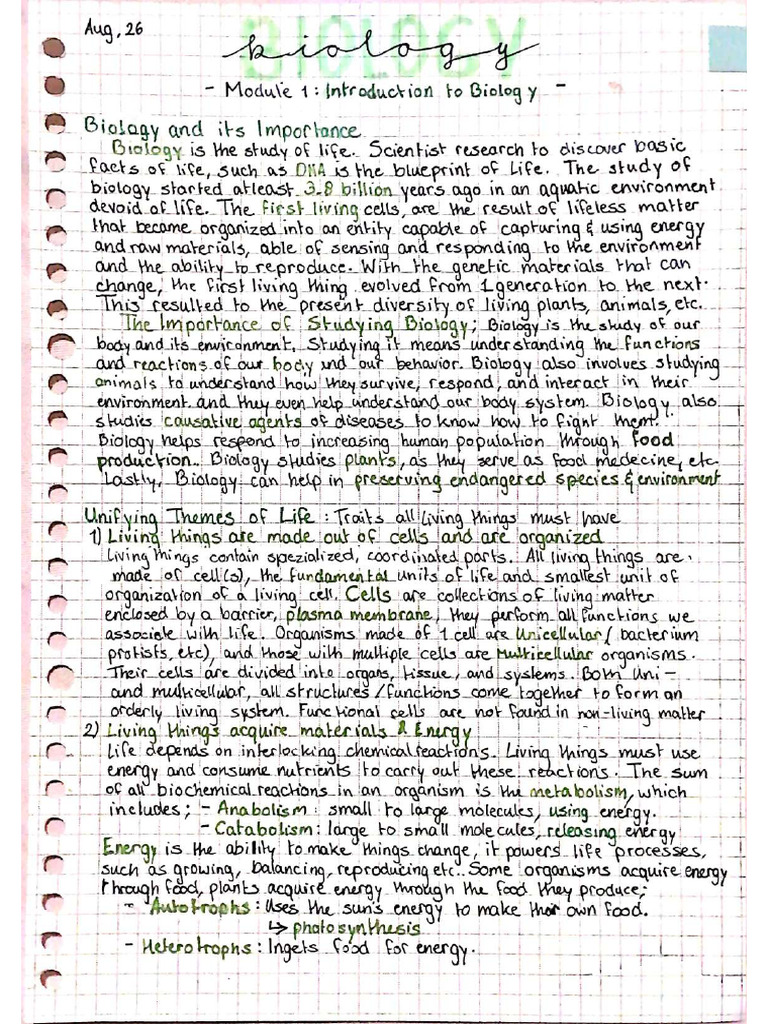 Aug, 26
BIOLOGY
biology
- Module 1: Introduction to Biology -
Biology and its Importance
Biology is the study of life. Scientist research to discover basic
facts of life, such as DNA is the blueprint of Life. The study of
biology started atleast 3.8 billion years ago in an aquatic environment
devoid of life. The first living cells, are the result of lifeless matter
that became organized into an entity capable of capturing & using energy
and raw materials, able of sensing and responding to the environment
and the ability to reproduce. With the genetic materials that can
change, the first living thing evolved from 1 generation to the next.
This resulted to the present diversity of living plants, animals, etc.
The Importance of Studying Biology; Biology is the study of our
body and its environment. Studying it means understanding the functions
and reactions of our body and our behavior. Biology also involves studying
animals to understand how they survive, respond, and interact in their
environment. and they even help understand our body system. Biology also
studies causative agents of diseases to know how to fight them.
Biology helps respond to increasing human population through food
production. Biology studies plants, as they serve as food medecine, etc.
Lastly, Biology can help in preserving endangered species & environment
Unifying Themes of Life : Traits all living things must have
1) Living things are made out of cells and are organized
Living things contain spezialized, coordinated parts. All living things are
made of cell(s), the fundamental units of life and smallest unit of
organization of a living cell. Cells are collections of living matter
enclosed by a barrier, plasma membrane, they perform all functions we
associate with life. Organisms made of 1 cell are Unicellular ( bacterium
protists, etc), and those with multiple cells are Multicellular organisms.
Their cells are divided into organs, tissue, and systems. Both Uni-
and multicellular, all structures / functions come together to form an
orderly living system. Functional cells are not found in non-living matter
2) Living things acquire materials & Energy
Life depends on interlocking chemical reactions. Living things must use
energy and consume nutrients to carry out these reactions. The sum
of all biochemical reactions in an organism is the metabolism, which
includes; - Anabolism : small to large molecules, using energy.
- Catabolism : large to small molecules, releasing energy
Energy is the ability to make things change, it powers life processes,
such as growing, balancing, reproducing etc. Some organisms acquire energy
through food, plants acquire energy through the food they produce;
- Autotrophs : Uses the sun's energy to make their own food.
↳ photosynthesis
- Heterotrophs : Ingets food for energy.